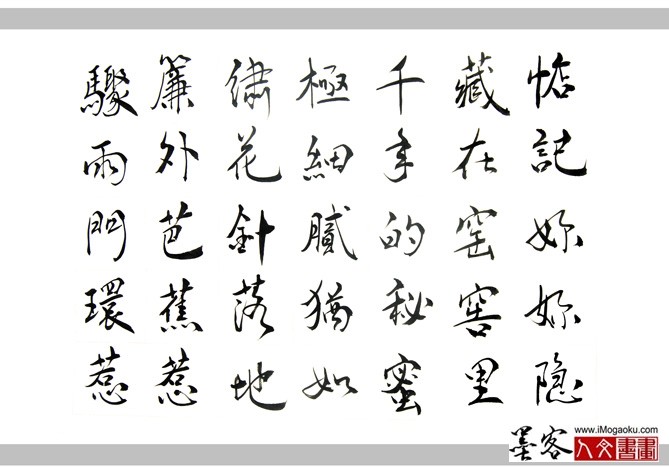 惦記妳妳隐
藏在窑窖里
千年的秘蜜
極細膩猶如
繡花針落地
簾外芭蕉惹
驟雨門環惹
www.iMogaoku.com
墨客 人文書畫